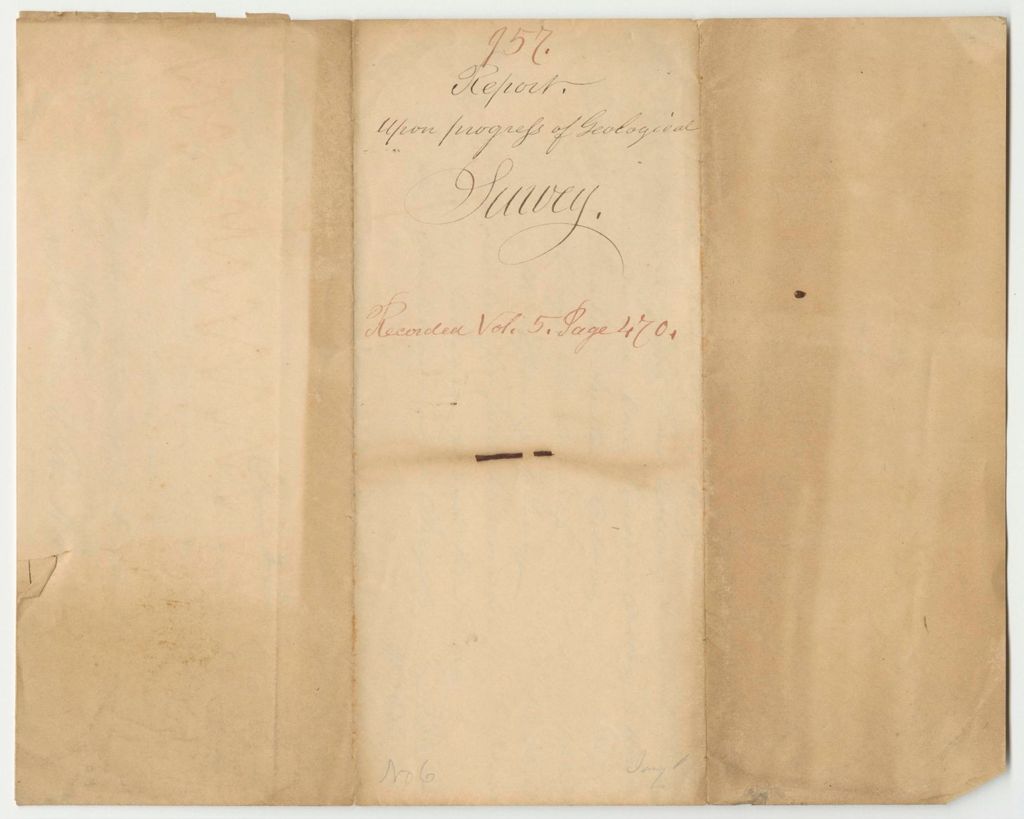 957.
Report.
Upon progress of Geological
Survey.
Recorded Vol. 5. Page 470.
No 6